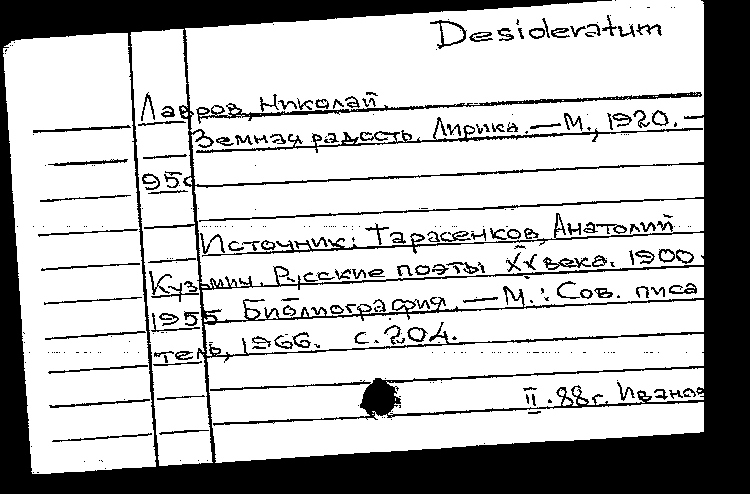 Desideratum
Лавров, Николай.
Земная радость. Лирика. — М., 1920. —
95с
Источник: Тарасенков, Анатолий
Кузьмич. Русские поэты XX века. 1900-
1955. Библиография. — М.: Сов. писа
тель, 1966. с. 204.
II. 88г. Иванов